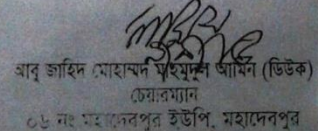 আবু জাহিদ মোহাম্মদ মাহমুদুল আমিন (ডিউক)
চেয়ারম্যান
০৬ নং মহাদেবপুর ইউপি, মহাদেবপুর